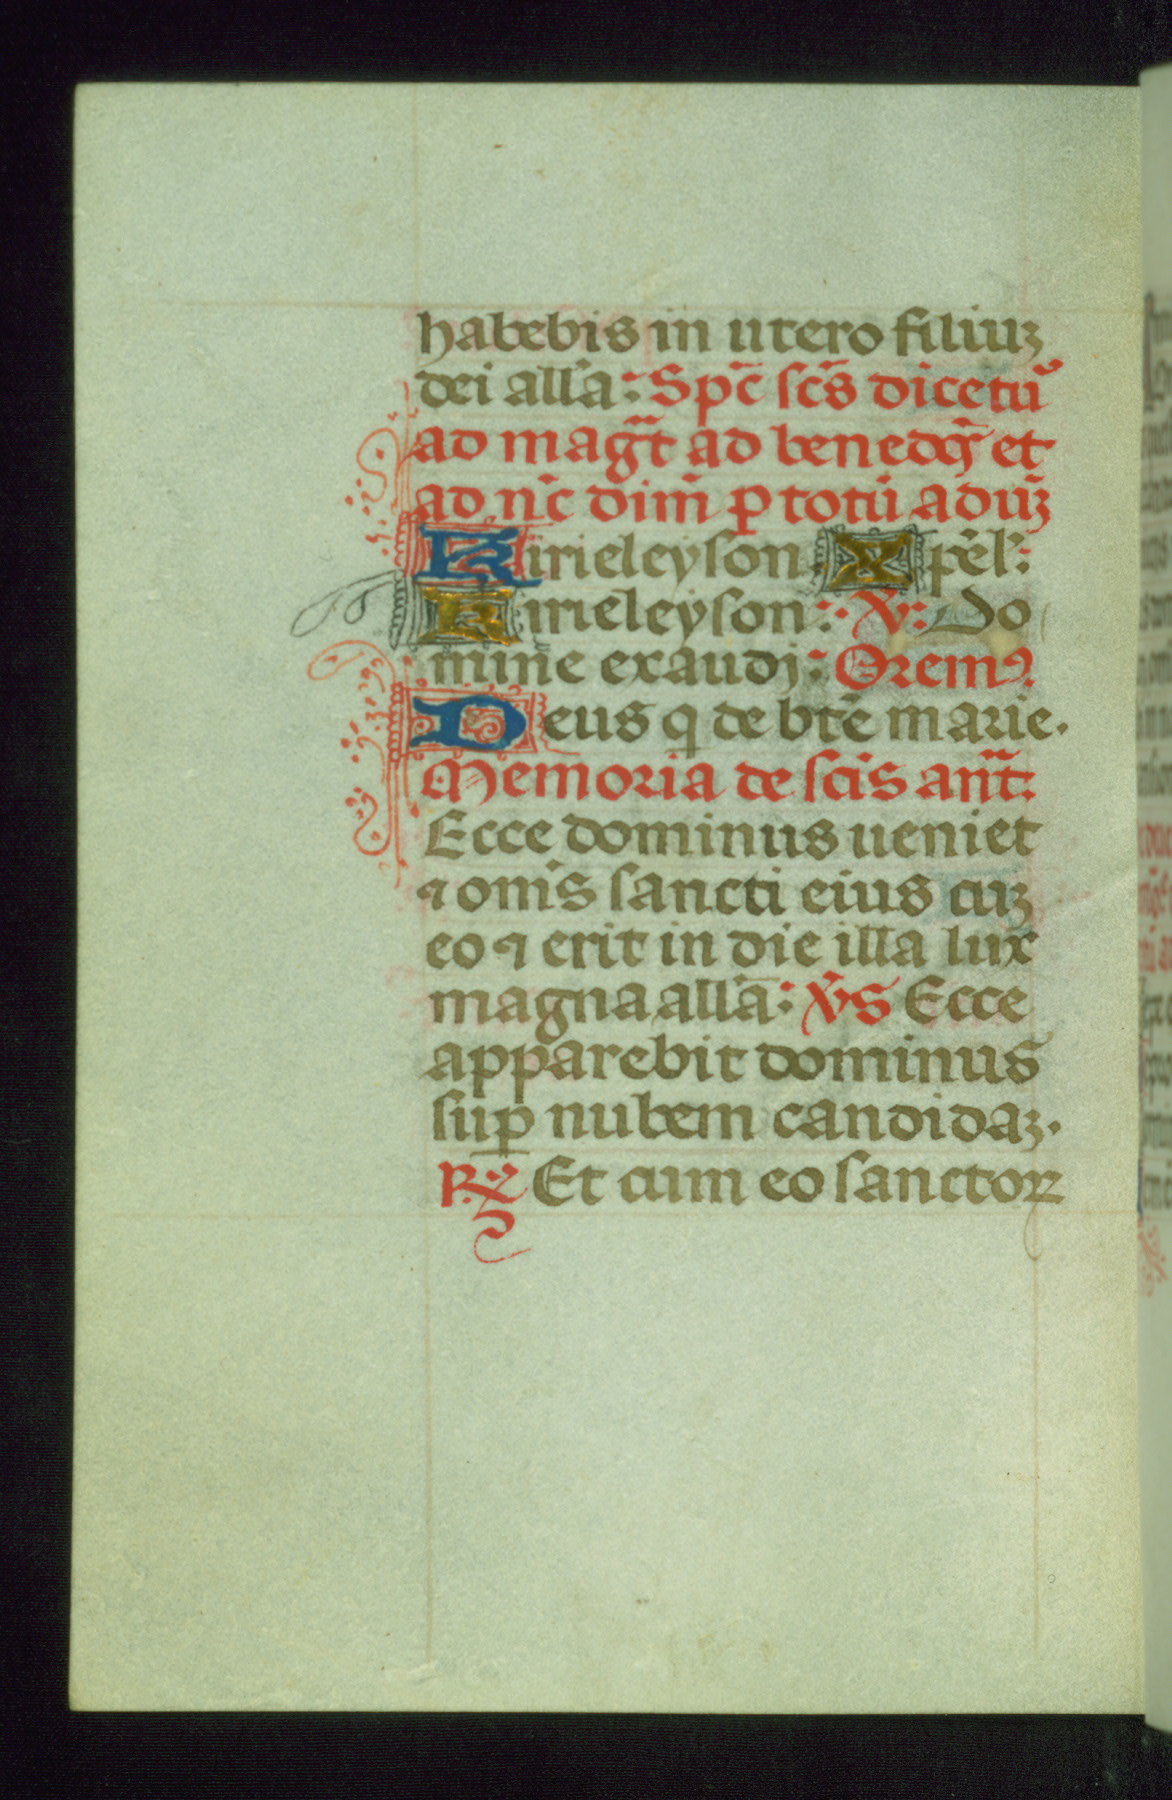 habebis in utero filiuz
dei all'a: Sp̄c sc̄s dicetū
ad maḡt ad benedꝯ et
ad nc̄ dim̄ ꝑ totū aduz̄
Kirieleyson Xp̄el':
Kirieleyson: ℣: Do
mine exaudi: Oremꝯ.
Deus q̄ de btē marie.
Memoria de scīs añt:
Ecce dominus ueniet
⁊ om̄s sancti eius cuz
eo ⁊ erit in die illa lux
magna all'a: ℣s Ecce
apparebit dominus
suꝑ nubem candidaz.
℟ Et cum eo sanctoꝝ